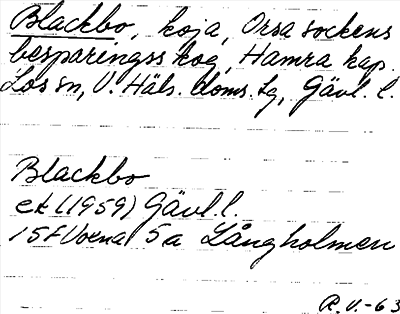 Blackbo, koja, Orsa sockens
besparingsskog, Hamra kap.
Los sn, V. Häls. doms. tg, Gävl. l.
Blackbo
ek (1959) Gävl. l.
15F Voxna 5a Långholmen
R.V.-63